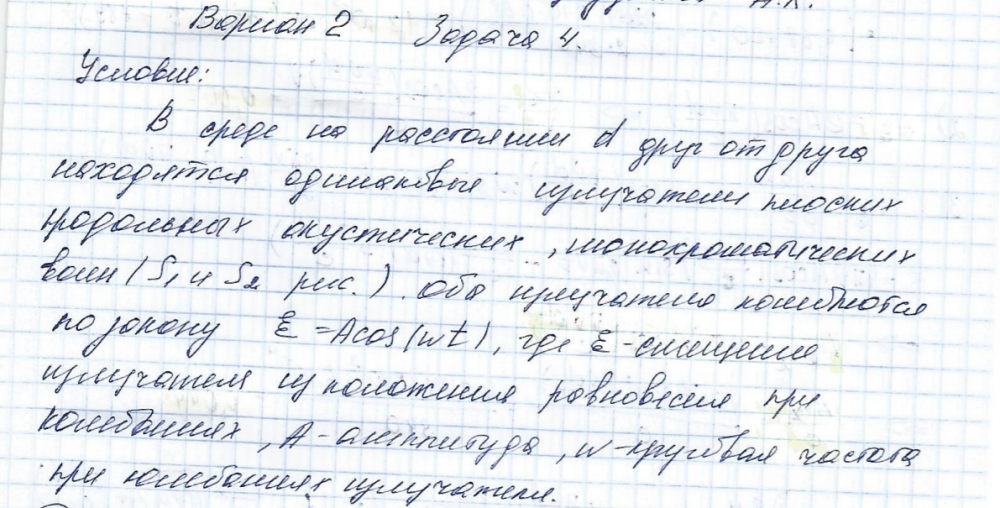 Вариан 2 Задача 4.
Условие:
В среде на расстоянии d друг от друга
находятся одинаковые излучатели плоских
продольных акустических, монохроматических
волн (S₁ и S₂ рис.). Оба излучателя колеблются
по закону ξ = A cos(ωt), где ξ - смещение
излучателя из положения равновесия при
колебаниях, A - амплитуда, ω - круговая частота
при колебаниях излучателя.